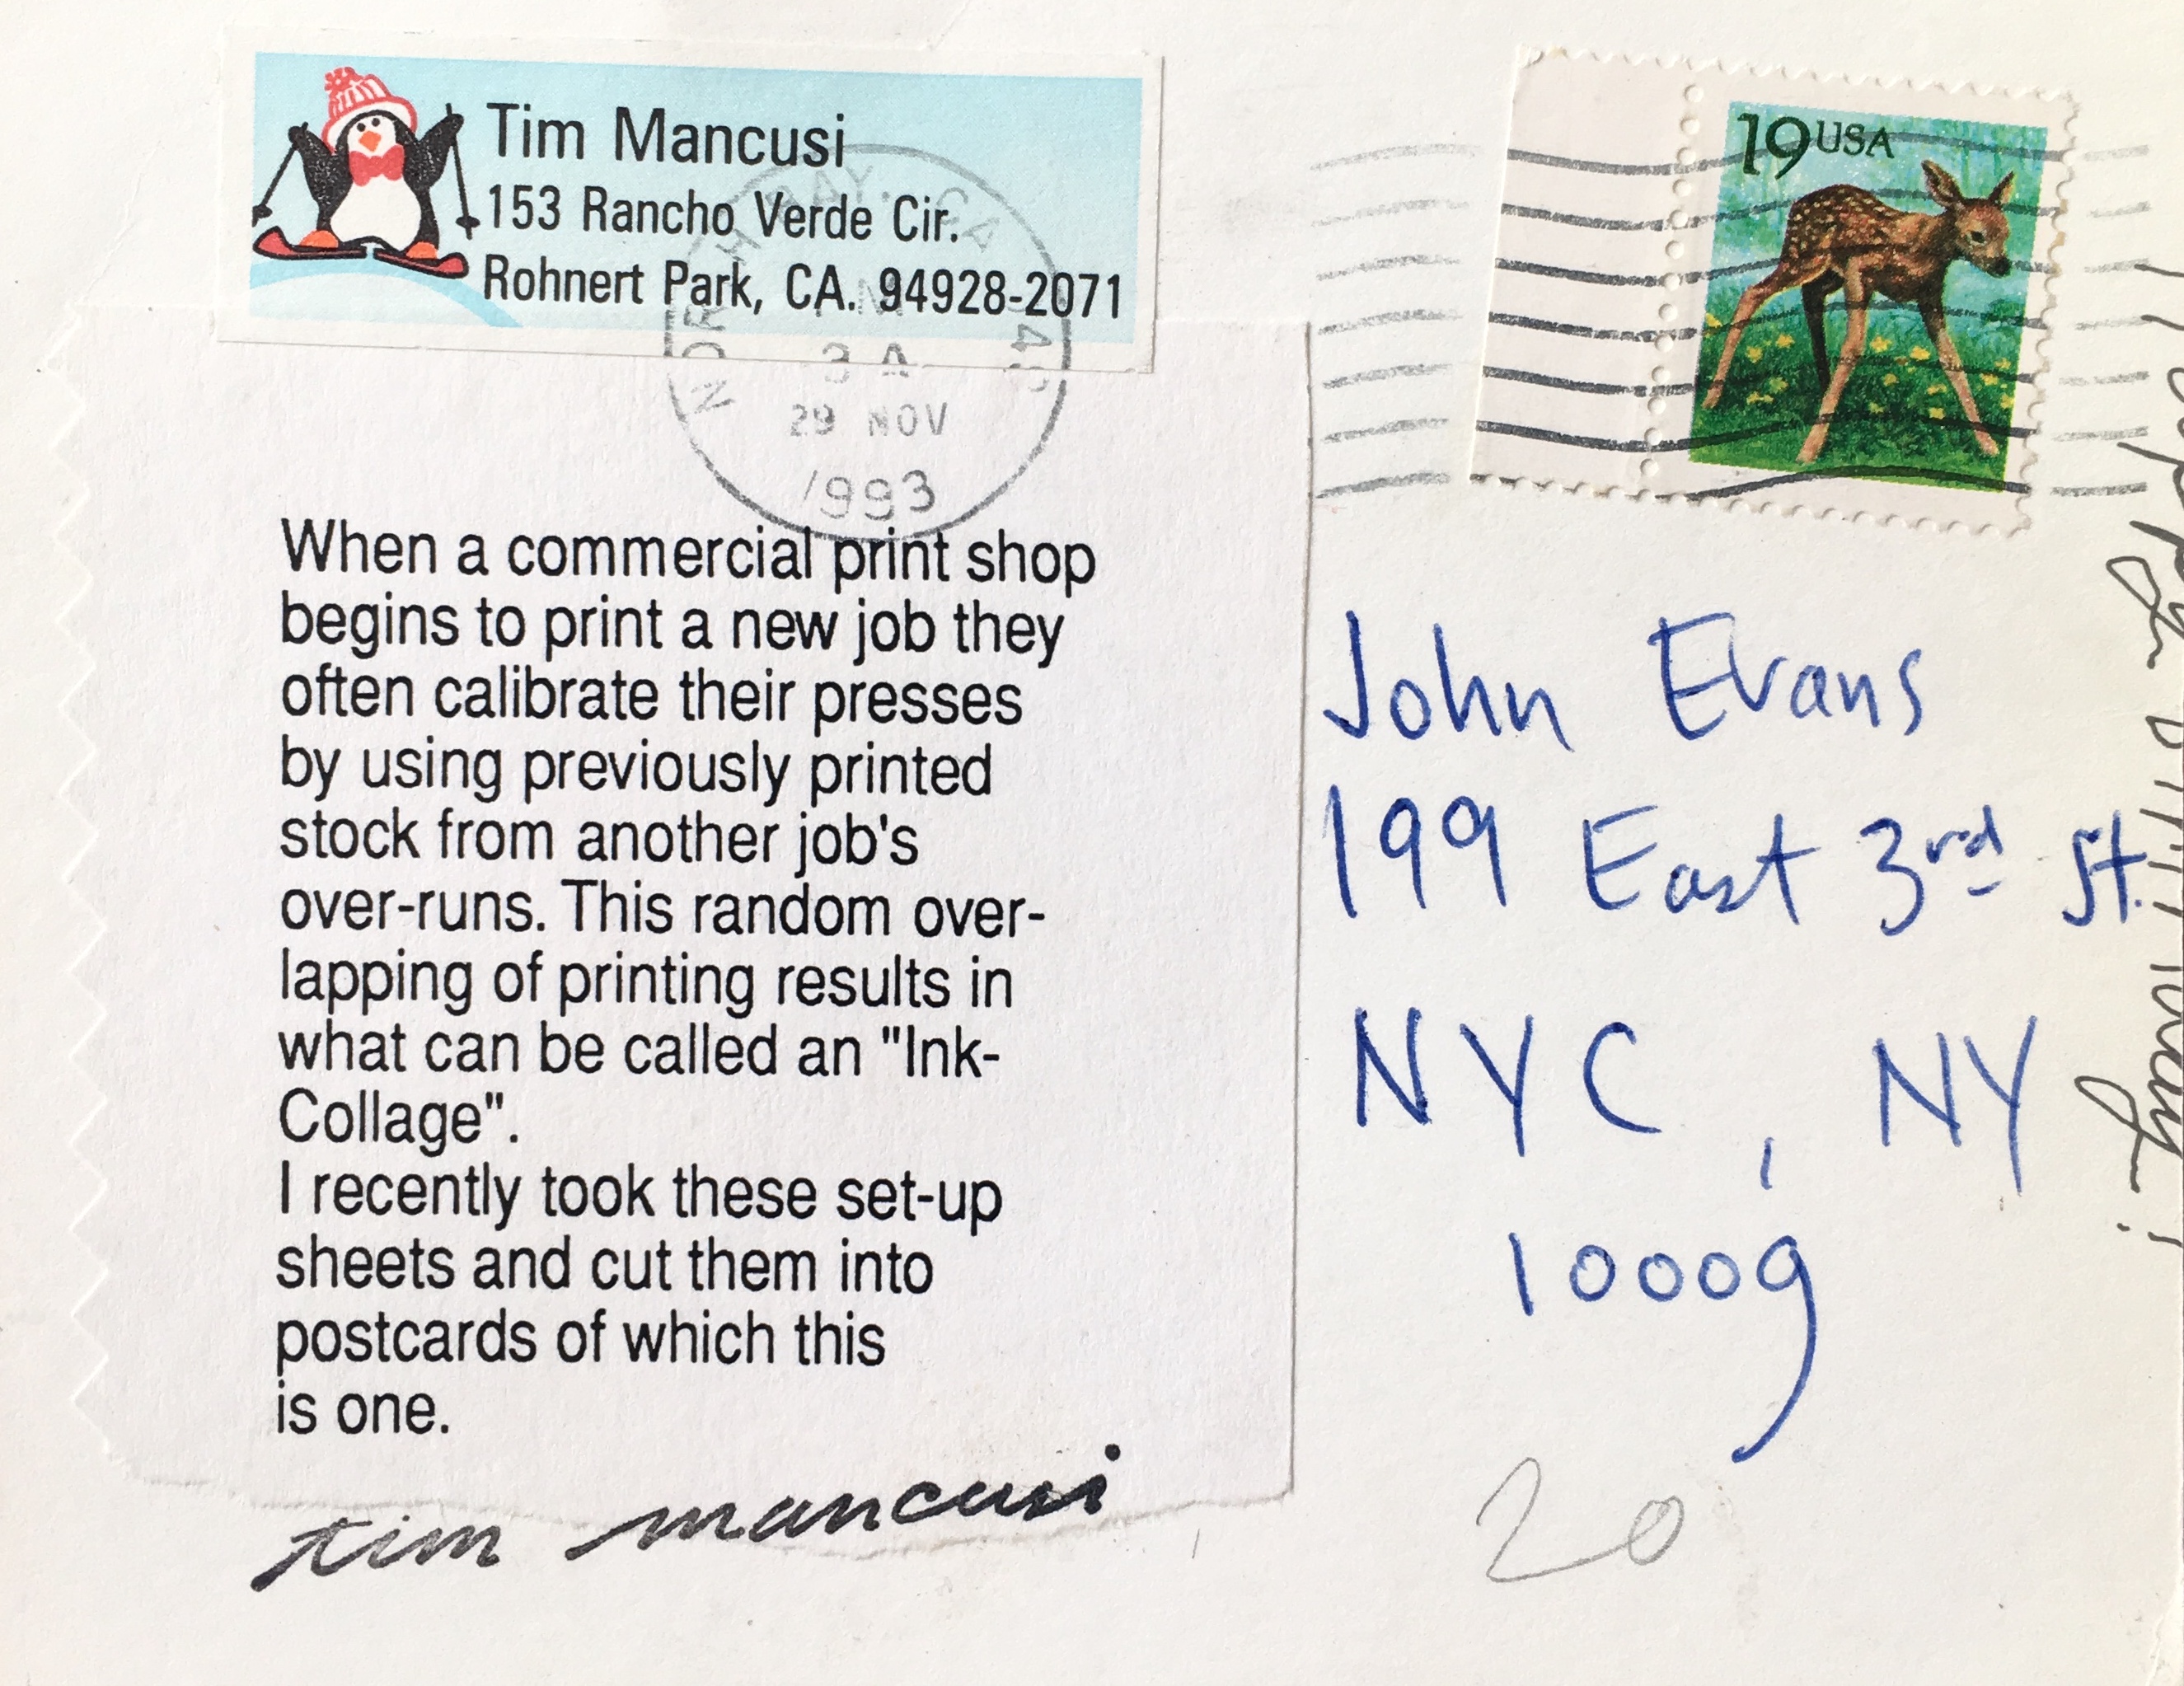 Tim Mancusi
153 Rancho Verde Cir.
Rohnert Park, CA. 94928-2071
29 NOV
1993
19 USA
When a commercial print shop
begins to print a new job they
often calibrate their presses
by using previously printed
stock from another job's
over-runs. This random over-
lapping of printing results in
what can be called an "Ink-
Collage".
I recently took these set-up
sheets and cut them into
postcards of which this
is one.
tim mancusi
John Evans
199 East 3rd St.
NYC, NY
10009
20